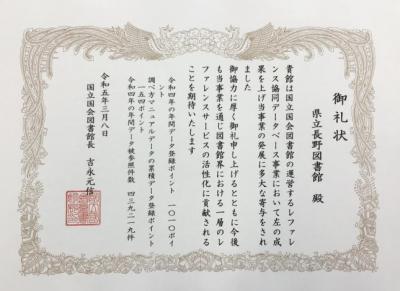 御礼状
県立長野図書館 殿
貴館は国立国会図書館の運営するレファレ
ンス協同データベース事業において左の成
果を上げ当事業の発展に多大な寄与をされ
ました
御協力に厚く御礼申し上げるとともに今後
も当事業を通じ図書館界における一層のレ
ファレンスサービスの活性化に貢献される
ことを期待いたします
令和四年の年間データ登録ポイント 一〇一〇ポイ
ント
調べ方マニュアルデータの累積データ登録ポイント
一一五四ポイント
令和四年の年間データ被参照件数 四三九二一九件
令和五年三月八日
国立国会図書館長 吉永元信